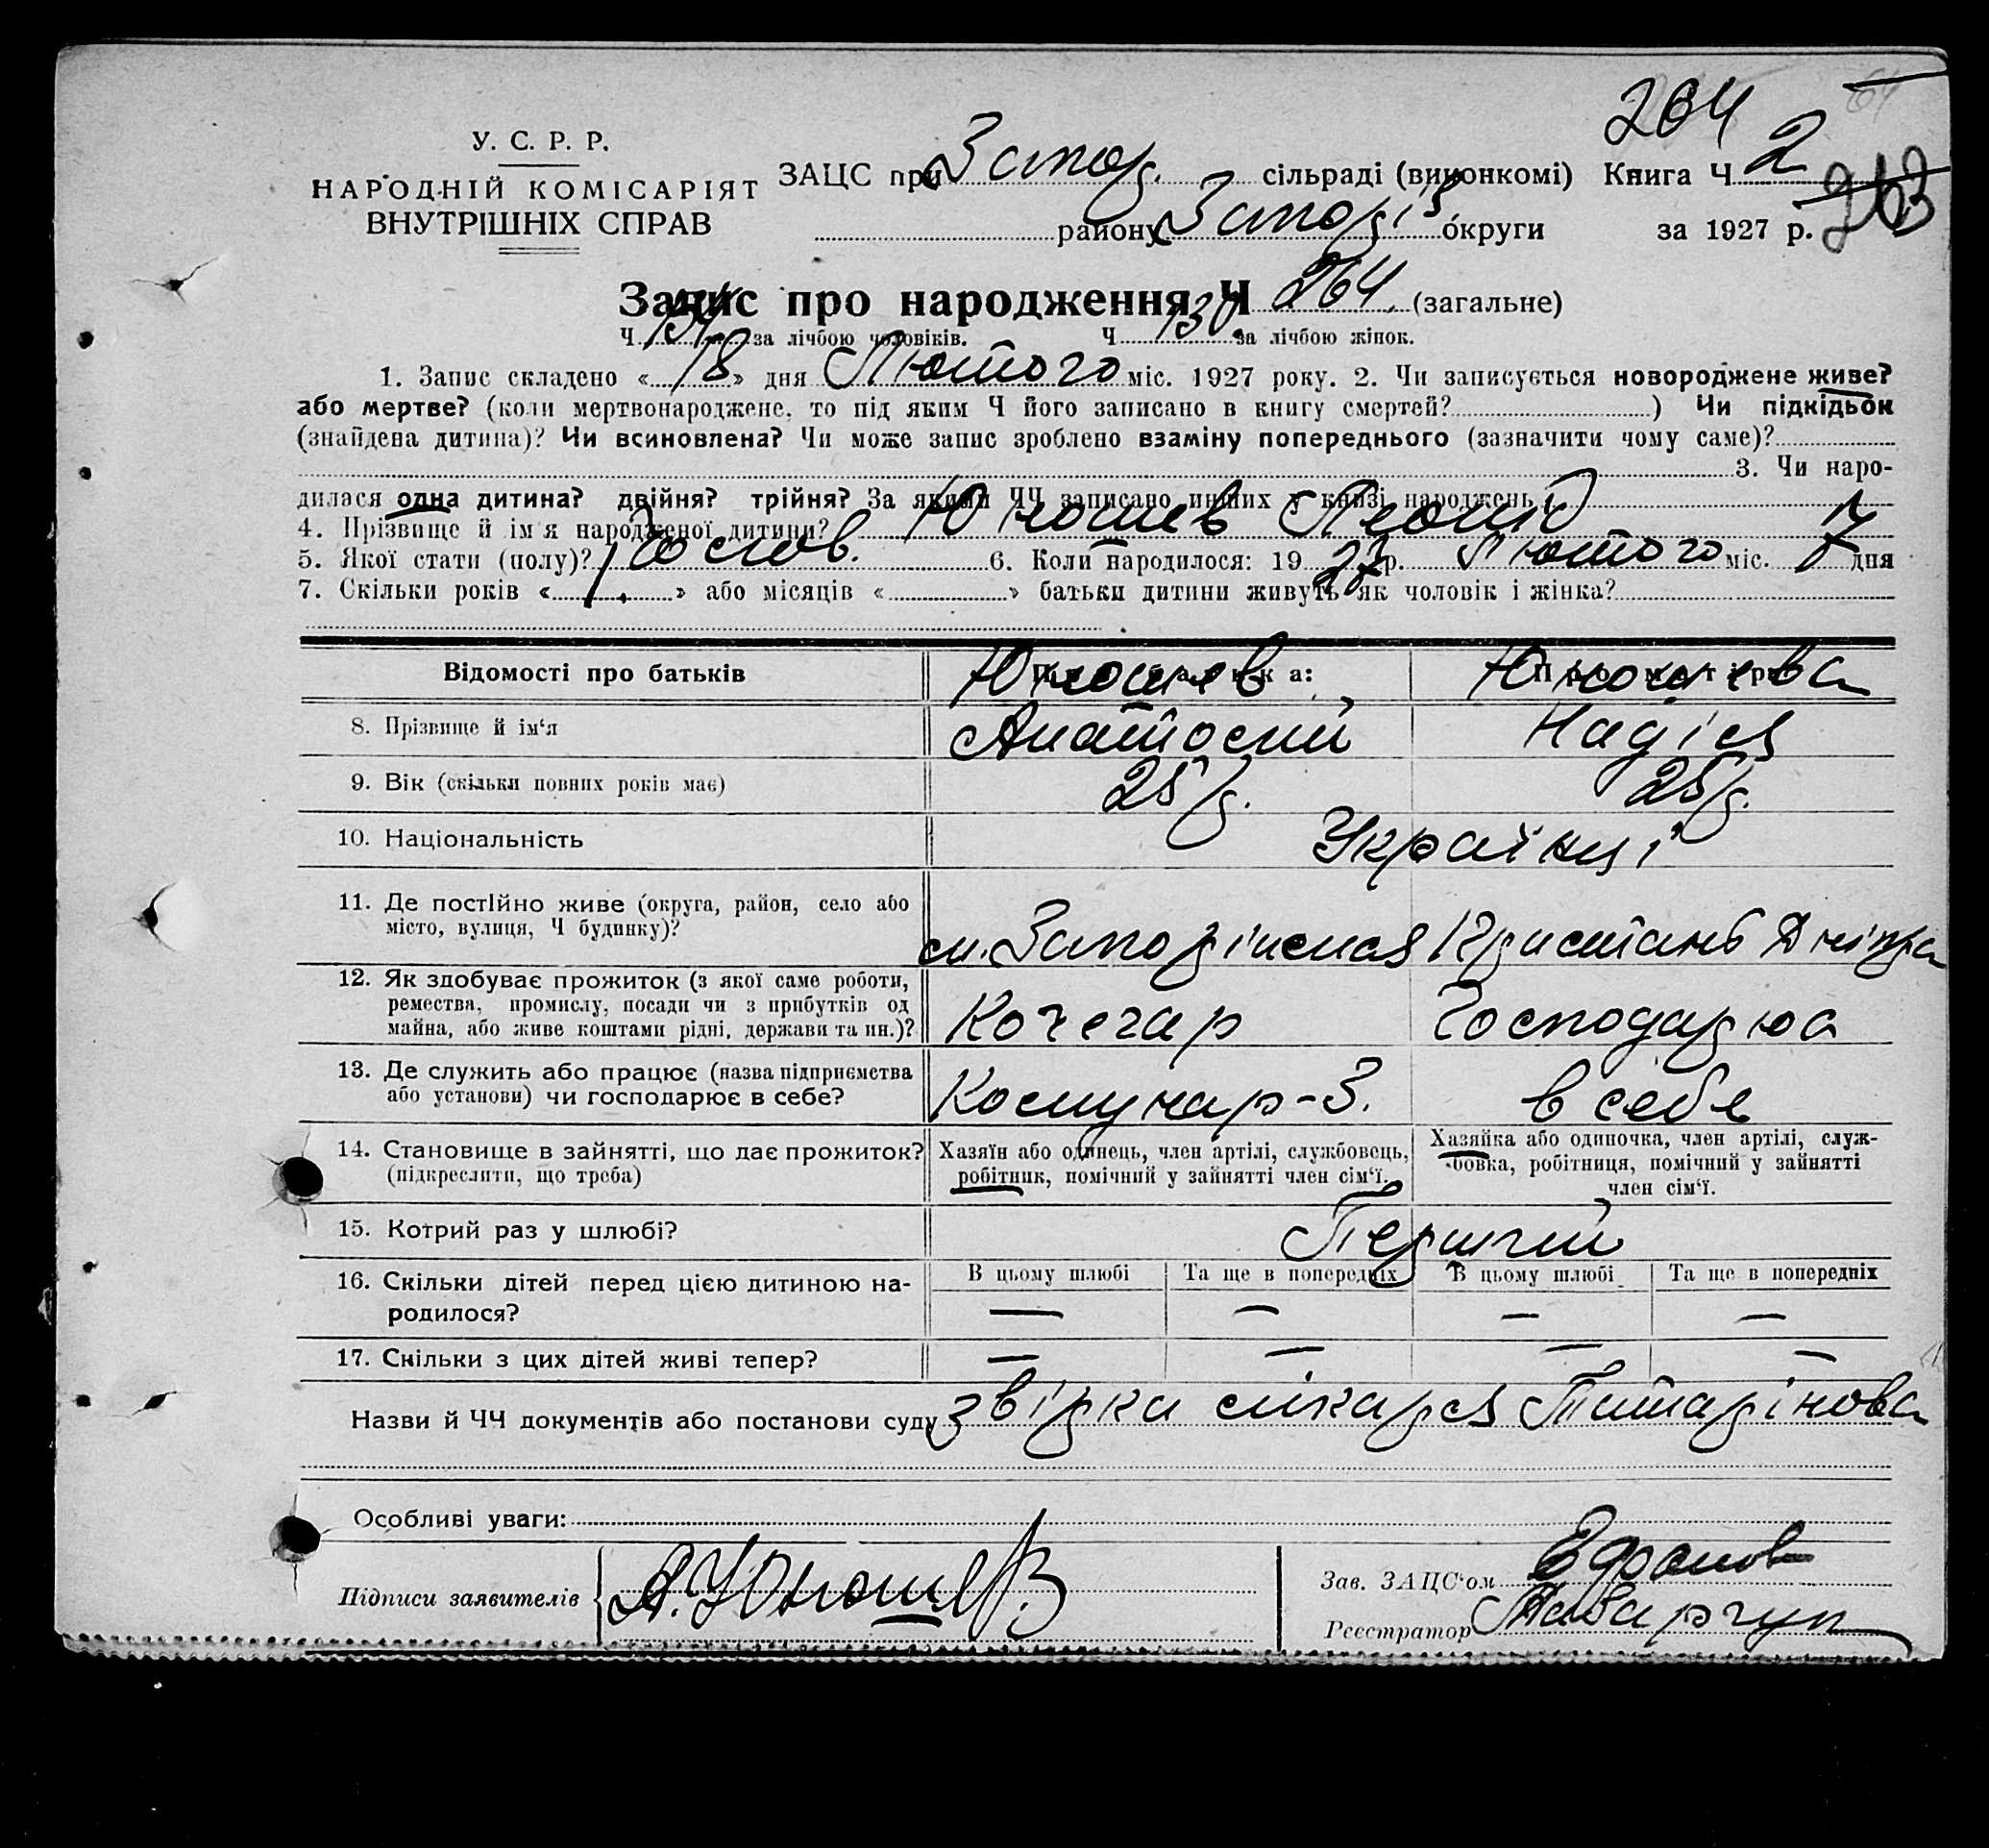 264
У. С. Р. Р.
НАРОДНІЙ КОМІСАРІЯТ
ВНУТРІШНІХ СПРАВ
ЗАЦС при Запор. сільраді (виконкомі) Книга Ч 2
району Запоріз округи за 1927 р. 263
Запис про народження Ч 264. (загальне)
Ч 134 за лічбою чоловіків. Ч 130 за лічбою жінок.
1. Запис складено « 18 » дня Лютого міс. 1927 року. 2. Чи записується новороджене живе?
або мертве? (коли мертвонароджене, то під яким Ч його записано в книгу смертей? ) Чи підкідьок
(знайдена дитина)? Чи всиновлена? Чи може запис зроблено взаміну попереднього (зазначити чому саме)?
3. Чи наро-
дилася одна дитина? двійня? трійня? За якими ЧЧ записано инших у книзі народжень
4. Прізвище й ім'я народженої дитини? Юношев Леонід
5. Якої стати (полу)? Чолов. 6. Коли народилося: 19 27 р. Лютого міс. 7 дня
7. Скільки років « 1. » або місяців « » батьки дитини живуть як чоловік і жінка?
Відомості про батьків Про батька: Про матір:
Юношев Юношева
8. Прізвище й ім'я Анатолий Надія
9. Вік (скільки повних років має) 25 р. 25 р.
10. Національність Українці
11. Де постійно живе (округа, район, село або
місто, вулиця, Ч будинку)? Запоріжжя Пристань Дніпра
12. Як здобуває прожиток (з якої саме роботи,
ремества, промислу, посади чи з прибутків од
майна, або живе коштами рідні, держави та ин.)? Кочегар Господарює
13. Де служить або працює (назва підприємства
або установи) чи господарює в себе? Комунар-З. в себе
14. Становище в зайнятті, що дає прожиток?
(підкреслити, що треба)
Хазяїн або одинець, член артілі, службовець,
робітник, помічний у зайнятті член сім'ї.
Хазяйка або одиночка, член артілі, служ-
бовка, робітниця, помічний у зайнятті
член сім'ї.
15. Котрий раз у шлюбі? Перший
16. Скільки дітей перед цією дитиною на-
родилося?
В цьому шлюбі Та ще в попередніх В цьому шлюбі Та ще в попередніх
— — — —
17. Скільки з цих дітей живі тепер? — — — —
Назви й ЧЧ документів або постанови суду звірка лікаря Титарінова
Особливі уваги:
Підписи заявителів А. Юношев
Зав. ЗАЦС'ом
Реєстратор